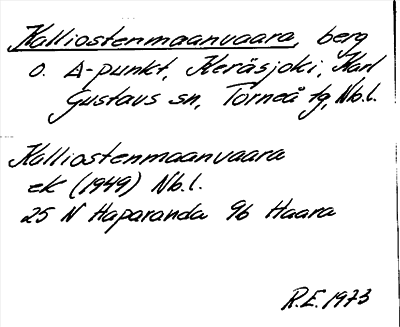 Kalliostenmaanvaara, berg
o. Δ-punkt, Keräsjoki, Karl
Gustavs sn, Torneå tg, Nb.l.
Kalliostenmaanvaara
ek (1949) Nb.l.
25 N Haparanda 9b Haara
R.E. 1973